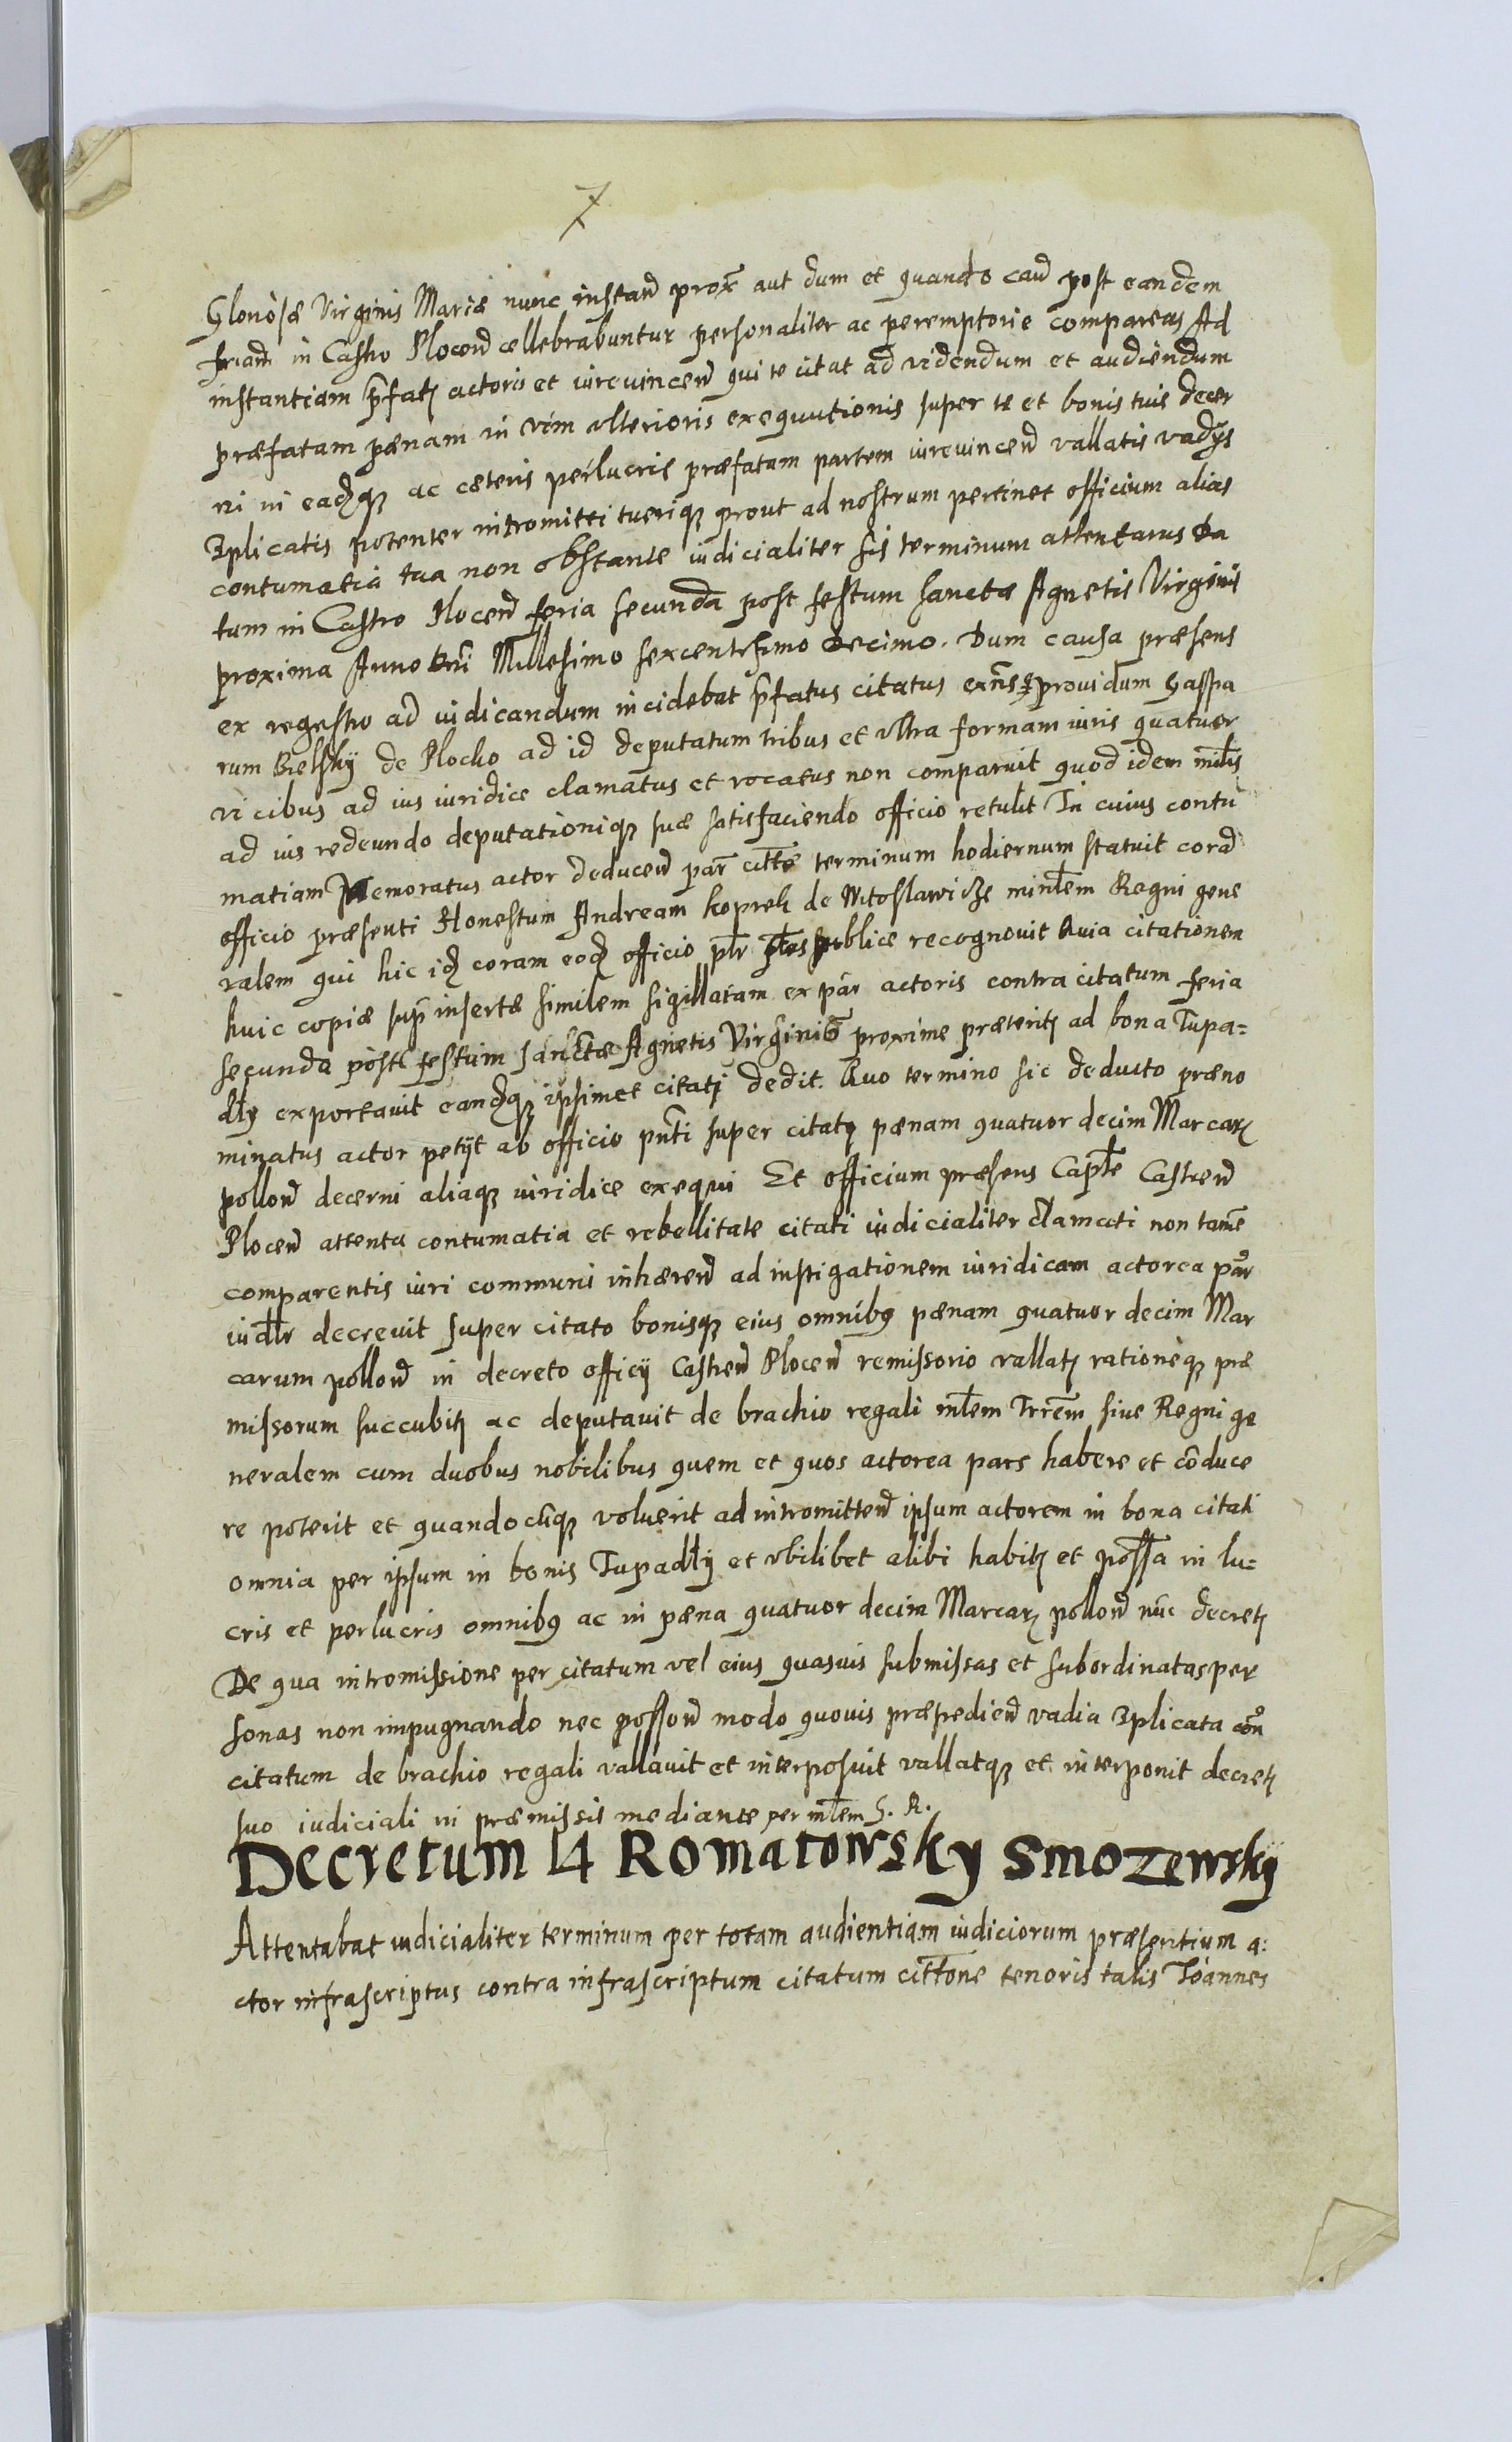 7
Gloriosæ Virginis Mariæ nunc instan prox aut dum et quando cau post eandem
feriam in Castro Plocen cellebrabuntur personaliter ac peremptorie compareas Ad
instantiam pfatj actoris et iurevincen qui te citat ad videndum et audiendum
præfatam pænam in vim ulterioris exequutionis super te et bonis tuis decer
ni in eadqz ac cæteris perlucris præfatam partem iurevincen vallatis vadijs
3plicatis potenter intromitti tueriqz prout ad nostrum pertinet officium alias
contumatia tua non obstante iudicialiter sis terminum attentarus Da
tum in Castro Plocen feria secunda post festum sanctæ Agnetis Virginis
proxima Anno Dni Millesimo sexcentesimo decimo. Dum causa præsens
ex regestro ad iudicandum incidebat pfatus citatus exns p providum Gaspa
rum Bielskij de Plocko ad id deputatum tribus et ultra formam iuris quatuor
vicibus ad ius iuridice clamatus et vocatus non comparuit quod idem mnlis
ad ius redeundo deputationiqz suæ satisfaciendo officio retulit In cuius contu
matiam Memoratus actor deducen par cittæ terminum hodiernum statuit cora
officio præsenti Honestum Andream kopreh de Mtoslawicze minlem Regni gene
ralem qui hic id coram eod officio plr publice recognovit Quia citationem
huic copiæ sup insertæ similem sigillatam ex par actoris contra citatum feria
secunda post festum sanctæ Agnetis Virginis proxime præteritj ad bona Tupa=
dły exportavit eandqz ipsimet citatj dedit. Quo termino sic deducto præno
minatus actor petijt ab officio pnti super citatj pænam quatuor decim Marcarj
pollon decerni aliaqz iuridice exequi Et officium præsens Caple Castren
Plocen attenta contumatia et rebellitate citati iudicialiter clamati non tame
comparentis iuri communi inhæren ad instigationem iuridicam actorea par
iudlr decrevit super citato bonisqz eius omnibq pænam quatuor decim Mar
carum pollon in decreto officij Castren Plocen remissorio vallatj rationeqz præ
missorum succubitj ac deputavit de brachio regali mlem Trrem sive Regni ge
neralem cum duobus nobilibus quem et quos actorea pars habere et coduce
re poterit et quandocuqz voluerit ad intromitten ipsum actorem in bona citati
omnia per ipsum in bonis Tupadły et ubilibet alibi habitj et possa in lu=
cris et perlucris omnibq ac in pæna quatuor decim Marcarj pollon nuc decretj
De qua intromissione per citatum vel eius quasvis submissas et subordinatas per
sonas non impugnando nec posson modo quovis præpedien vadia 3plicata con
citatum de brachio regali vallavit et interposuit vallatqz et interponit decretj
suo iudiciali in præmissis mediante per mlem G. R.
Decretum 14 Romatowsky Smozewskÿ
Attentabat iudicialiter terminum per totam audientiam iudiciorum præsentium a:
ctor infrascriptus contra infrascriptum citatum cittone tenoris talis Joannes